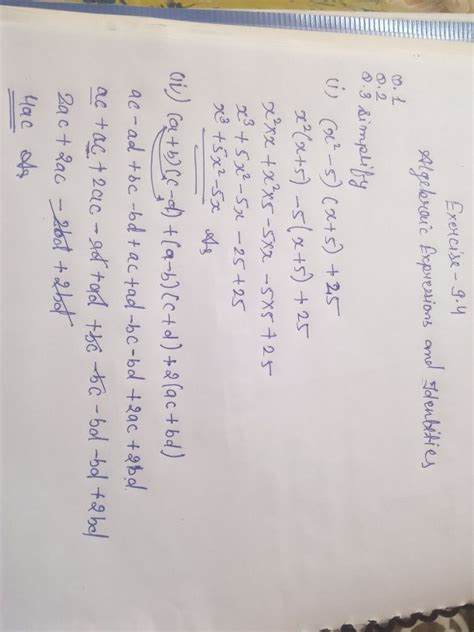 Exercise - 9.4
Algebraic Expressions and Identities
Q.1
Q.2
Q.3 Simplify
(i) (x² - 5) (x + 5) + 25
x² (x + 5) - 5 (x + 5) + 25
x² × x + x² × 5 - 5 × x - 5 × 5 + 25
x³ + 5x² - 5x - 25 + 25
x³ + 5x² - 5x Ans
(iv) (a + b) (c - d) + (a - b) (c + d) + 2 (ac + bd)
ac - ad + bc - bd + ac + ad - bc - bd + 2ac + 2bd
ac + ac + 2ac - ad + ad + bc - bc - bd - bd + 2bd
2ac + 2ac - 2bd + 2bd
4ac Ans